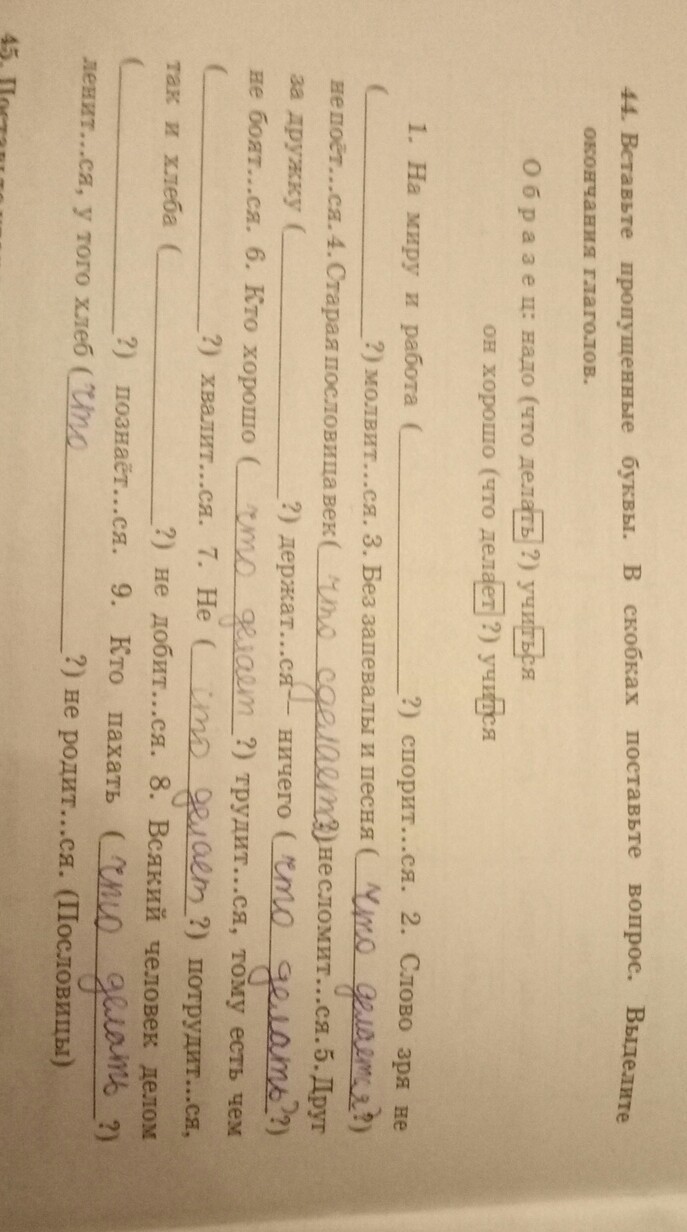 44. Вставьте пропущенные буквы. В скобках поставьте вопрос. Выделите
окончания глаголов.
Образец: надо (что делать ?) учиться
он хорошо (что делает ?) учится
1. На миру и работа (____________?) спорит...ся. 2. Слово зря не
(____________?) молвит...ся. 3. Без запевалы и песня (что делается?)
не поёт...ся. 4. Старая пословица век (что сделает?) не сломит...ся. 5. Друг
за дружку (____________?) держат...ся — ничего (что делать??)
не боят...ся. 6. Кто хорошо (что делает ?) трудит...ся, тому есть чем
(____________?) хвалит...ся. 7. Не (что делает ?) потрудит...ся,
так и хлеба (____________?) не добит...ся. 8. Всякий человек делом
(____________?) познаёт...ся. 9. Кто пахать (что делать ?)
ленит...ся, у того хлеб (что ____________?) не родит...ся. (Пословицы)